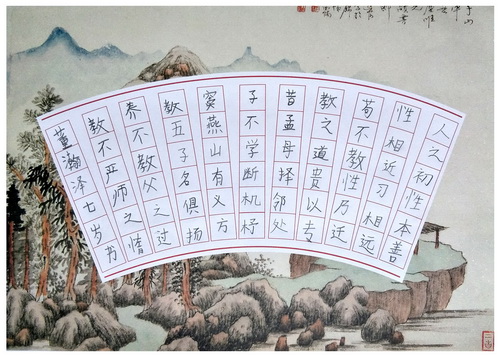 人之初性本善
性相近习相远
苟不教性乃迁
教之道贵以专
昔孟母择邻处
子不学断机杼
窦燕山有义方
教五子名俱扬
养不教父之过
教不严师之惰
董瀚泽七岁书